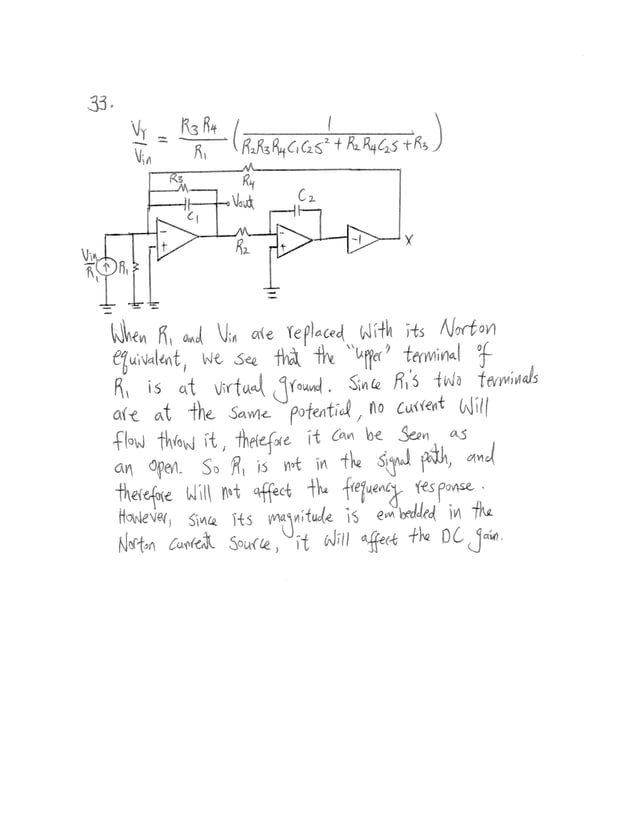 33.
V_Y / Vin = R3 R4 / R1 ( 1 / R2R3R4C1C2S² + R2R4C2S + R3 )
R3 R4
C1 Vout C2
- - 
Vin/R1 R1 + R2 + -1 X
When R1 and Vin are replaced with its Norton
equivalent, we see that the "upper" terminal of
R1 is at virtual ground. Since R1's two terminals
are at the same potential, no current will
flow throw it, therefore it can be seen as
an open. So R1 is not in the signal path, and
therefore will not affect the frequency response.
However, since its magnitude is embedded in the
Norton current source, it will affect the DC gain.